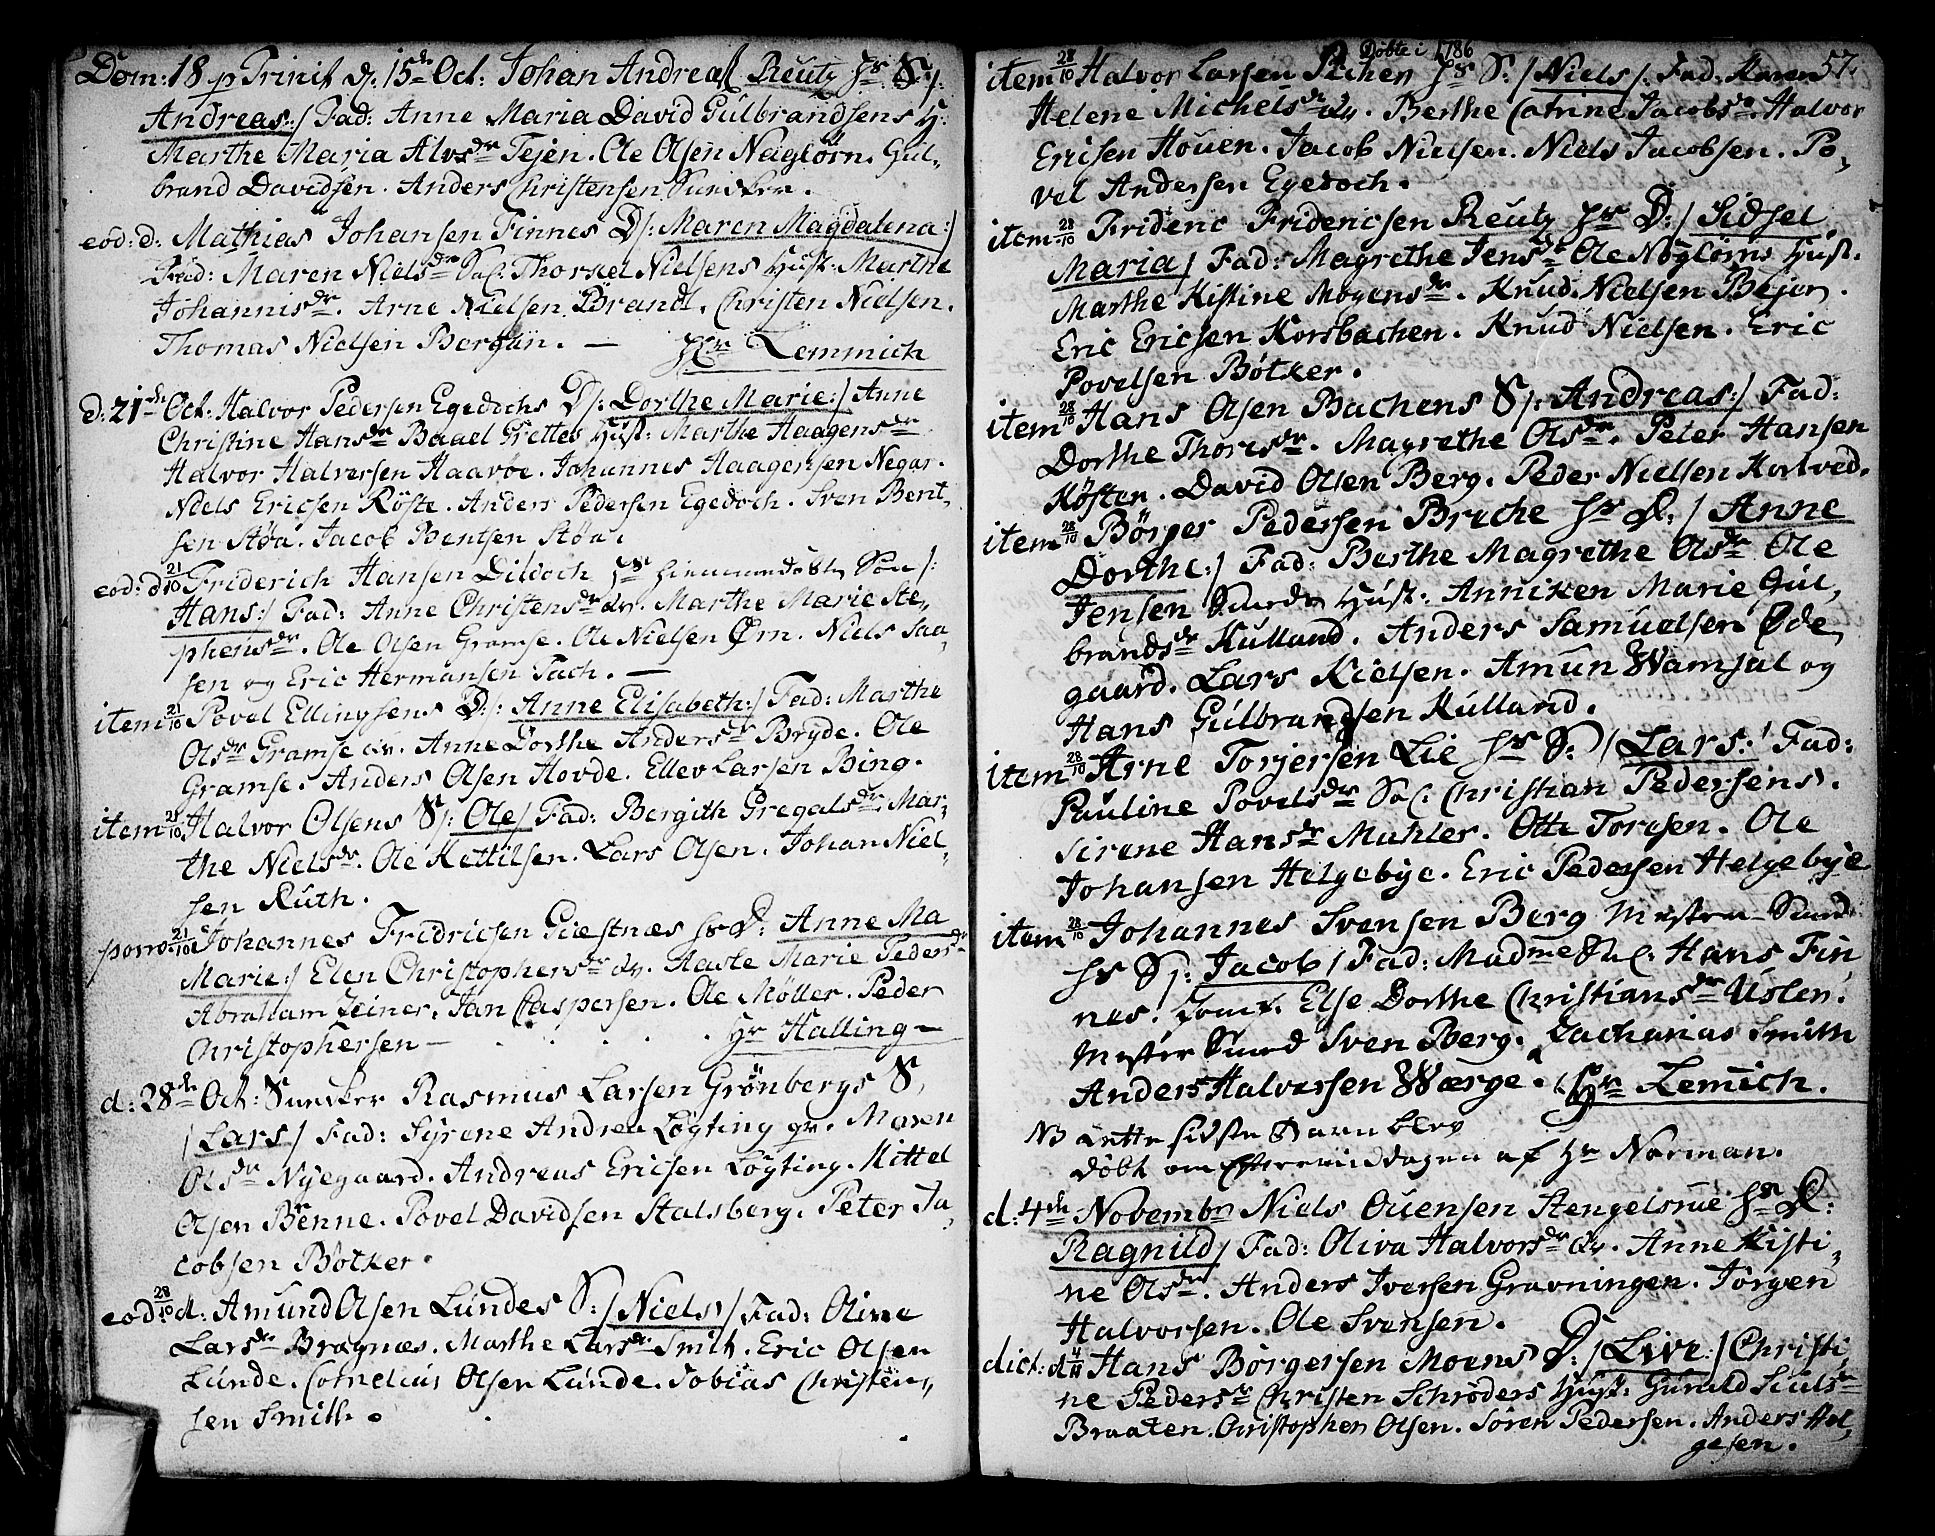 Dom: 18 p Trinit d: 15de Oct: Johan Andreas Reutz Hs S:/:
Andreas:/ Fad: Anne Maria David Gulbrandsens H:
Marthe Maria Alvsdr Tejen. Ole Olsen Nøglörn. Gul-
brand Davidsen. Anders Christensen Snecker.
eod: d: Mathias Johansen Finnes D/: Maren Magdalena:/
Fad: Maren Nielsdr Sal. Thorkel Nielsens Hust: Marthe
Johannisdr. Arne Nielsen Brandt. Christen Nielsen.
Thomas Nielsen Bergan. — Hr Lemmich
d: 21de Oct. Halvor Pedersen Egedochs D/: Dorthe Marie:/ Anne
Christine Hansdr Baael Grettes Hust: Marthe Haagensdr
Halvor Halversen Haavøe. Johannes Haagensen Negar.
Niels Ericsen Röste. Anders Pedersen Egedoch. Sven Bent-
sen Støa. Jacob Bentsen Støa.
eod: d 21/10 Friderich Hansen Dildoch Hs hiemmedøbte Søn /:
Hans:/ Fad: Anne Christensdr dr. Marthe Marie Ste-
phensdr. Ole Olsen Gramse. Ole Nielsen Ørn. Niels Saa-
sen og Eric Hermansen Tach. —
item 21/10 Povel Ellingsens D:/: Anne Elisabeth:/ Fad: Marthe
Olsdr Gramse dr. Anne Dorthe Andersdr Bryde. Ole
Gramse. Anders Olsen Hovde. Ellev Larsen Bing.
item 21/10 Halvor Olsens S/: Ole/ Fad: Bergith Gregalsdr. Mar-
the Nielsdr. Ole Kettilsen. Lars Olsen. Johan Niel-
sen Ruth.
porro 21/10 Johannes Fridricsen Giestnæs hs D: Anne Ma
Marie:/ Elen Christophersdr dr. Aaste Marie Pedersdr
Abraham Zeiner. Jan Caspersen. Ole Møller. Peder
Christophersen — . . . . Hr Halling —
d: 28de Oct: Snecker Rasmus Larsen Grönbergs S.
/Lars/ Fad: Syrene Andrea Løgting gr. Maren
Olsdr Nyegaard. Andreas Ericsen Løgting. Kittel
Olsen Benne. Povel Davidsen Stalsberg. Peter Ja-
cobsen Bøtker.
eod: 28/10 d: Amund Olsen Lundes S:/ Niels/ Fad: Oline
Larsdr Bragnæs. Marthe Larsdr Smith. Eric Olsen
Lunde. Cornelius Olsen Lunde. Tobias Christen-
sen Smith.
Döbte i 1786
57.
item 28/10 Halvor Larsen Hs S:/ Niels/: Fad: Maren
Helene Michelsdr dr. Berthe Catrine Jacobsdr. Halvor
Ericsen Houen. Jacob Nielsen. Niels Jacobsen. Po-
vel Andersen Egedoch.
item 28/10 Frideric Fridericsen Reutz Hs D:/ Sidsel
Maria/ Fad: Magrethe Jensdr Ole Nøglörns Hust.
Marthe Kistine Mogensdr. Knud Nielsen Bejer.
Eric Ericsen Korsbachen. Knud Nielsen. Eric
Povelsen Bøtker.
item 28/10 Hans Olsen Bachens S/: Andreas:/ Fad:
Dorthe Thoresdr. Magrethe Olsdr. Peter Hansen
Kösten. David Olsen Berg. Peder Nielsen Kortved.
item 28/10 Börger Pedersen Breche hs D. / Anne
Dorthe:/ Fad: Berthe Magrethe Olsdr Ole
Jensen Smeds Hust: Anniken Marie Gul-
brandsdr Kulland. Anders Samuelsen Øde-
gaard. Lars Kielsen. Amun Wamsal og
Hans Gulbrandsen Kulland.
item 28/10 Arne Torjersen Lie hs S: /Lars: Fad:
Pauline Povelsdr Sal: Christian Pedersens.
Sirene Hansdr Muhler. Otte Toresen. Ole
Johansen Helgebye. Eric Pedersen Helgebye
item 28/10 Johannes Svensen Berg Mester Smed
hs S/: Jacob/ Fad: Madme Sal: Hans Fin-
nes. Jomf. Else Dorthe Christiansdr Uslen.
Mester Smed Sven Berg. Zacharias Smith
Anders Halversen Wærge. Hr Lemich.
NB dette sidste Barn blev
døbt om Eftermiddagen af Hr Norman.
d: 4de Novembr Niels Ouensen Stengelsrue hs D:
Ragnild/ Fad: Oliva Halvorsdr dr. Anne Kisti-
ne Olsdr. Anders Iversen Gravningen. Jörgen
Halvorsen. Ole Svensen.
dict: d 4/11 Hans Börgersen Moens D:/ Live:/ Christi-
ne Pedersdr Christen Schrøders Hust: Gunild Siulsdr
Braaten. Christopher Olsen. Sören Pedersen. Anders Hel-
gesen.